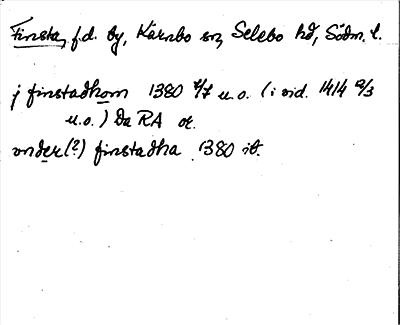 Finsta, f.d. by, Kärnbo sn, Selebo hd, Södm. l.
j finstadhom 1380 4/7 u.o. (i vid. 1414 2/3
u.o.) Da RA or.
vnder(?) finstadha 1380 ib.